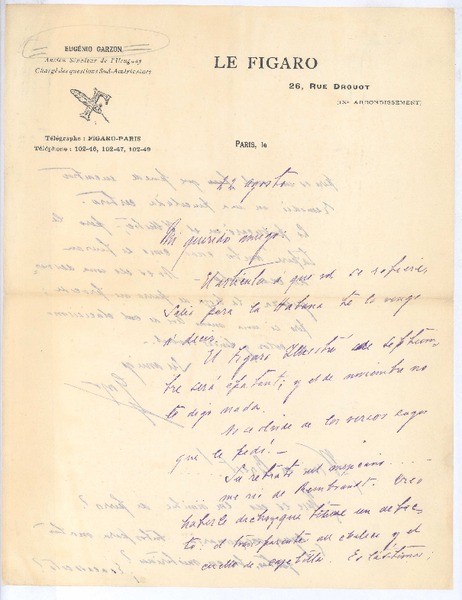 EUGENIO GARZON
Ancien Sénateur de l'Uruguay
Chargé des questions Sud-Américaines
LE FIGARO
26, RUE DROUOT
(IXe ARRONDISSEMENT)
Télégraphe : FIGARO-PARIS
Téléphone : 102-46, 102-47, 102-49
PARIS, le
22 agosto
Mi querido amigo
El articulo a que vd se refiere,
Salió para la Habana te lo vengo
a decir.
El Figaro Illustré de septiem
bre será epatant; y el de noviembre no
te digo nada.
No se olvide de los versos suyos
que le pedí.—
Su retrato del mejicano...
me rio de Rembrandt. Creo
haberle dicho que tiene un defec
to: el transparente del chaleco y el
cuello de